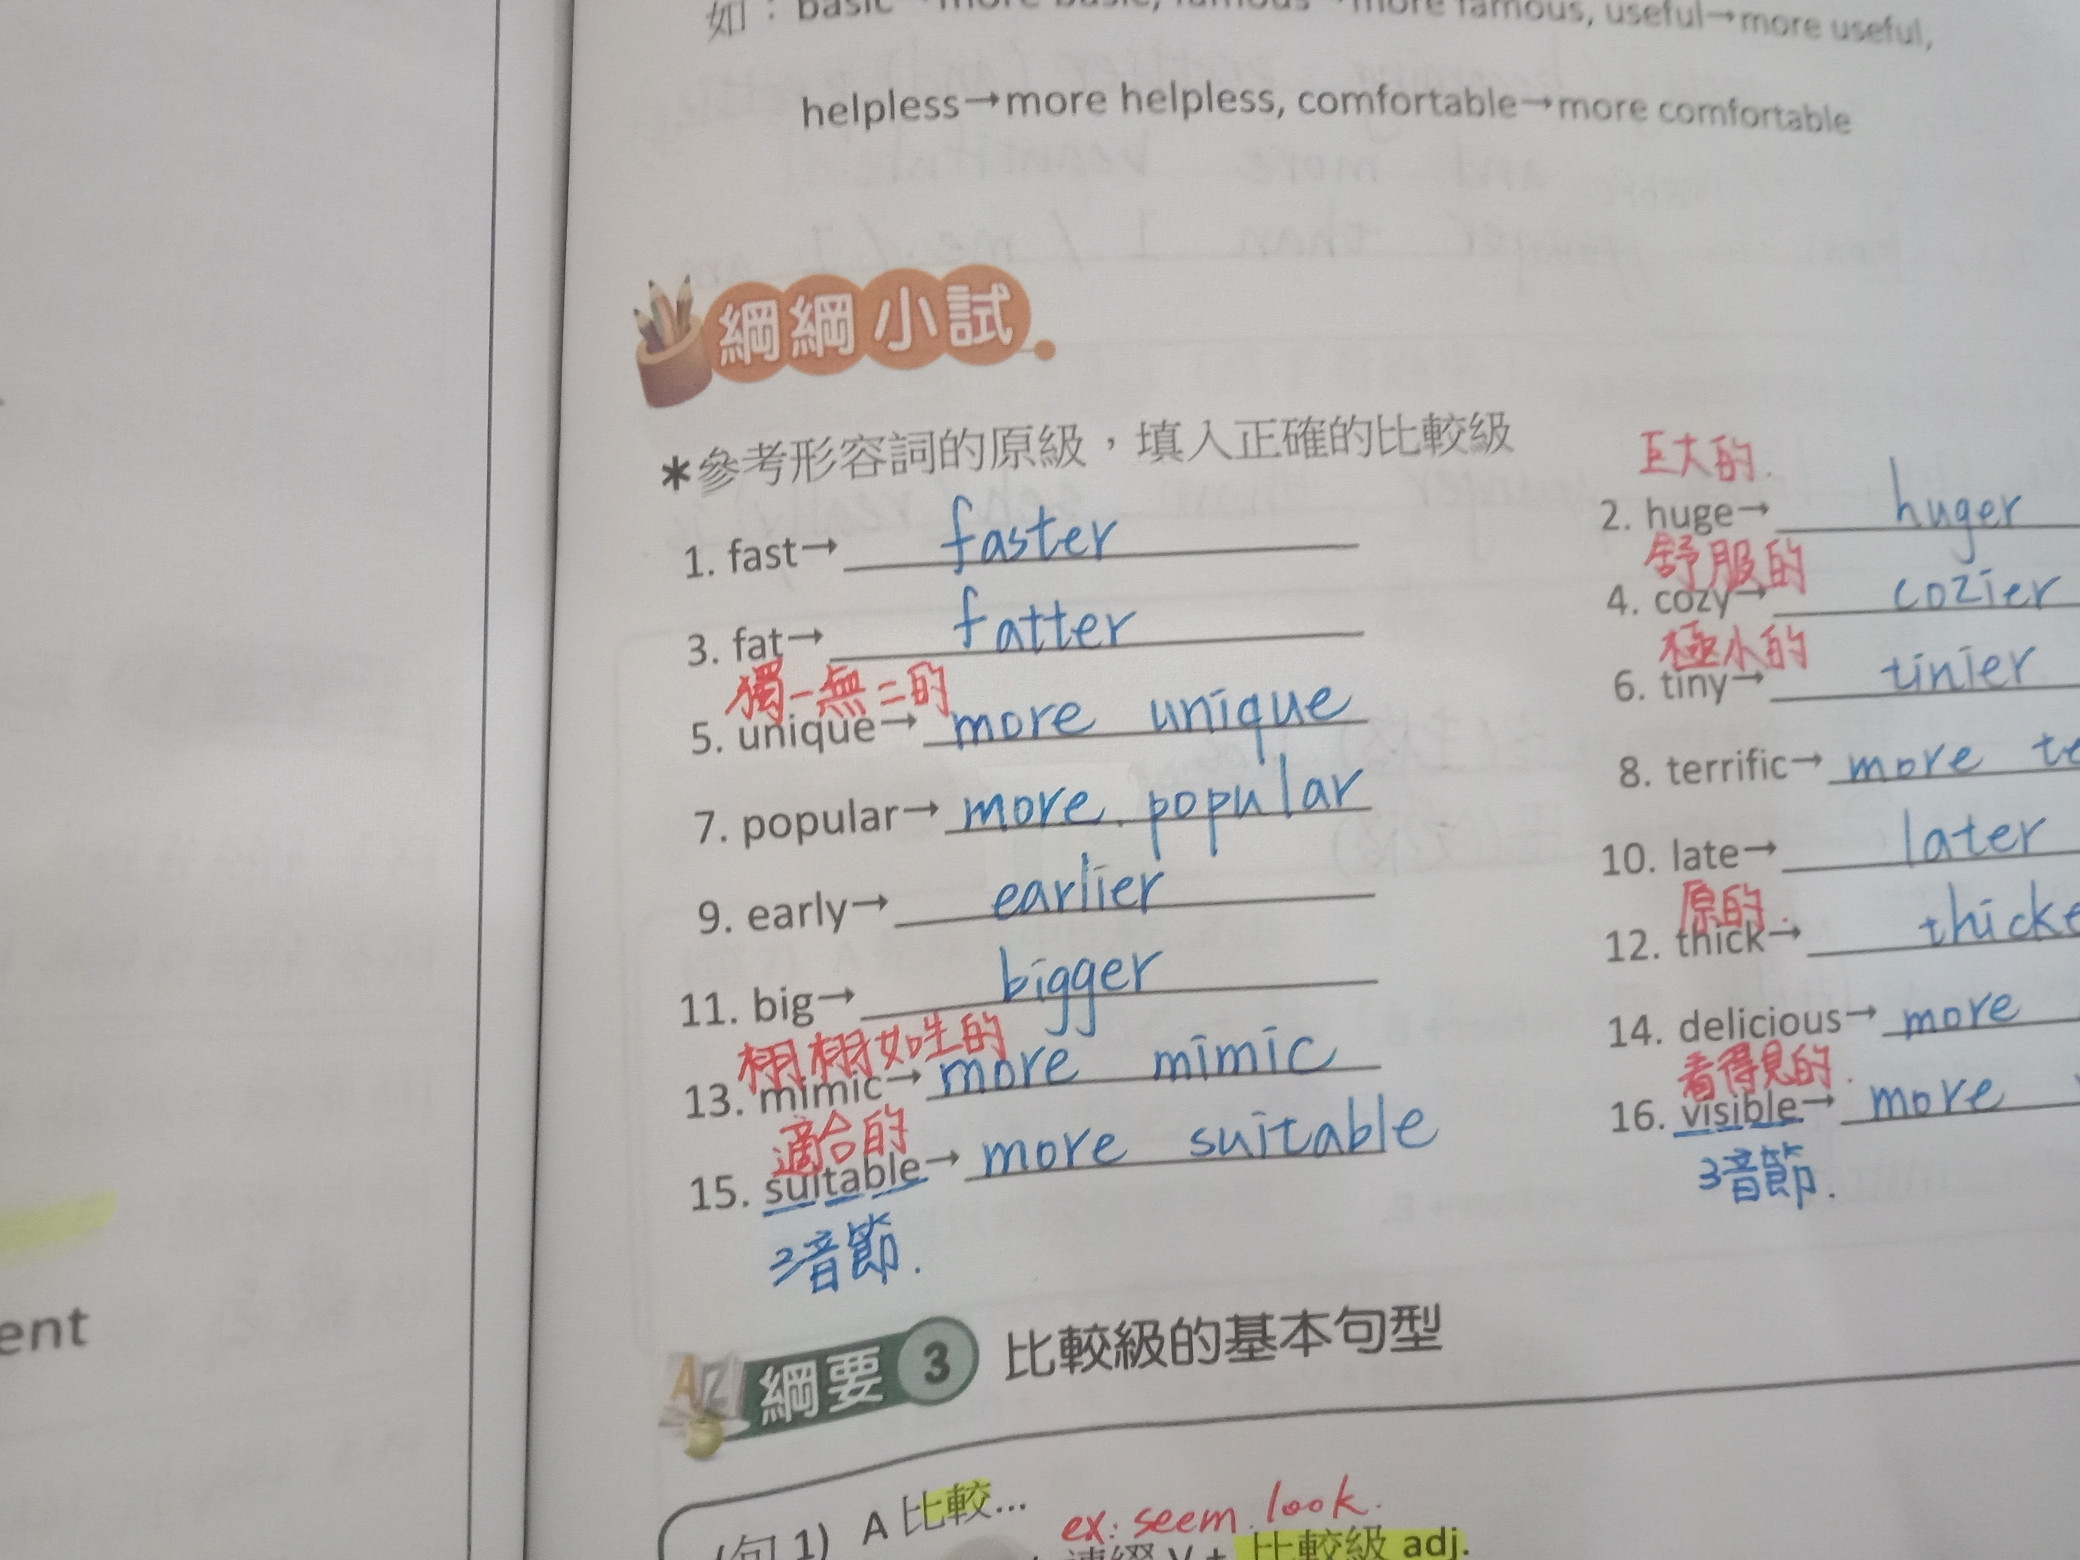 如：basic→more basic, famous→more famous, useful→more useful,
helpless→more helpless, comfortable→more comfortable
綱綱小試
*參考形容詞的原級，填入正確的比較級
巨大的.
1. fast→ faster 2. huge→ huger
舒服的
3. fat→ fatter 4. cozy→ cozier
獨一無二的 極小的
5. unique→ more unique 6. tiny→ tinier
7. popular→ more popular 8. terrific→ more te
9. early→ earlier 10. late→ later
原的.
11. big→ bigger 12. thick→ thicke
栩栩如生的
13. mimic→ more mimic 14. delicious→ more
適合的 看得見的.
15. suitable→ more suitable 16. visible→ more
3音節. 3音節.
ent
AZ 綱要 3 比較級的基本句型
(句1) A 比較...
ex: seem. look.
連綴 V + 比較級 adj.